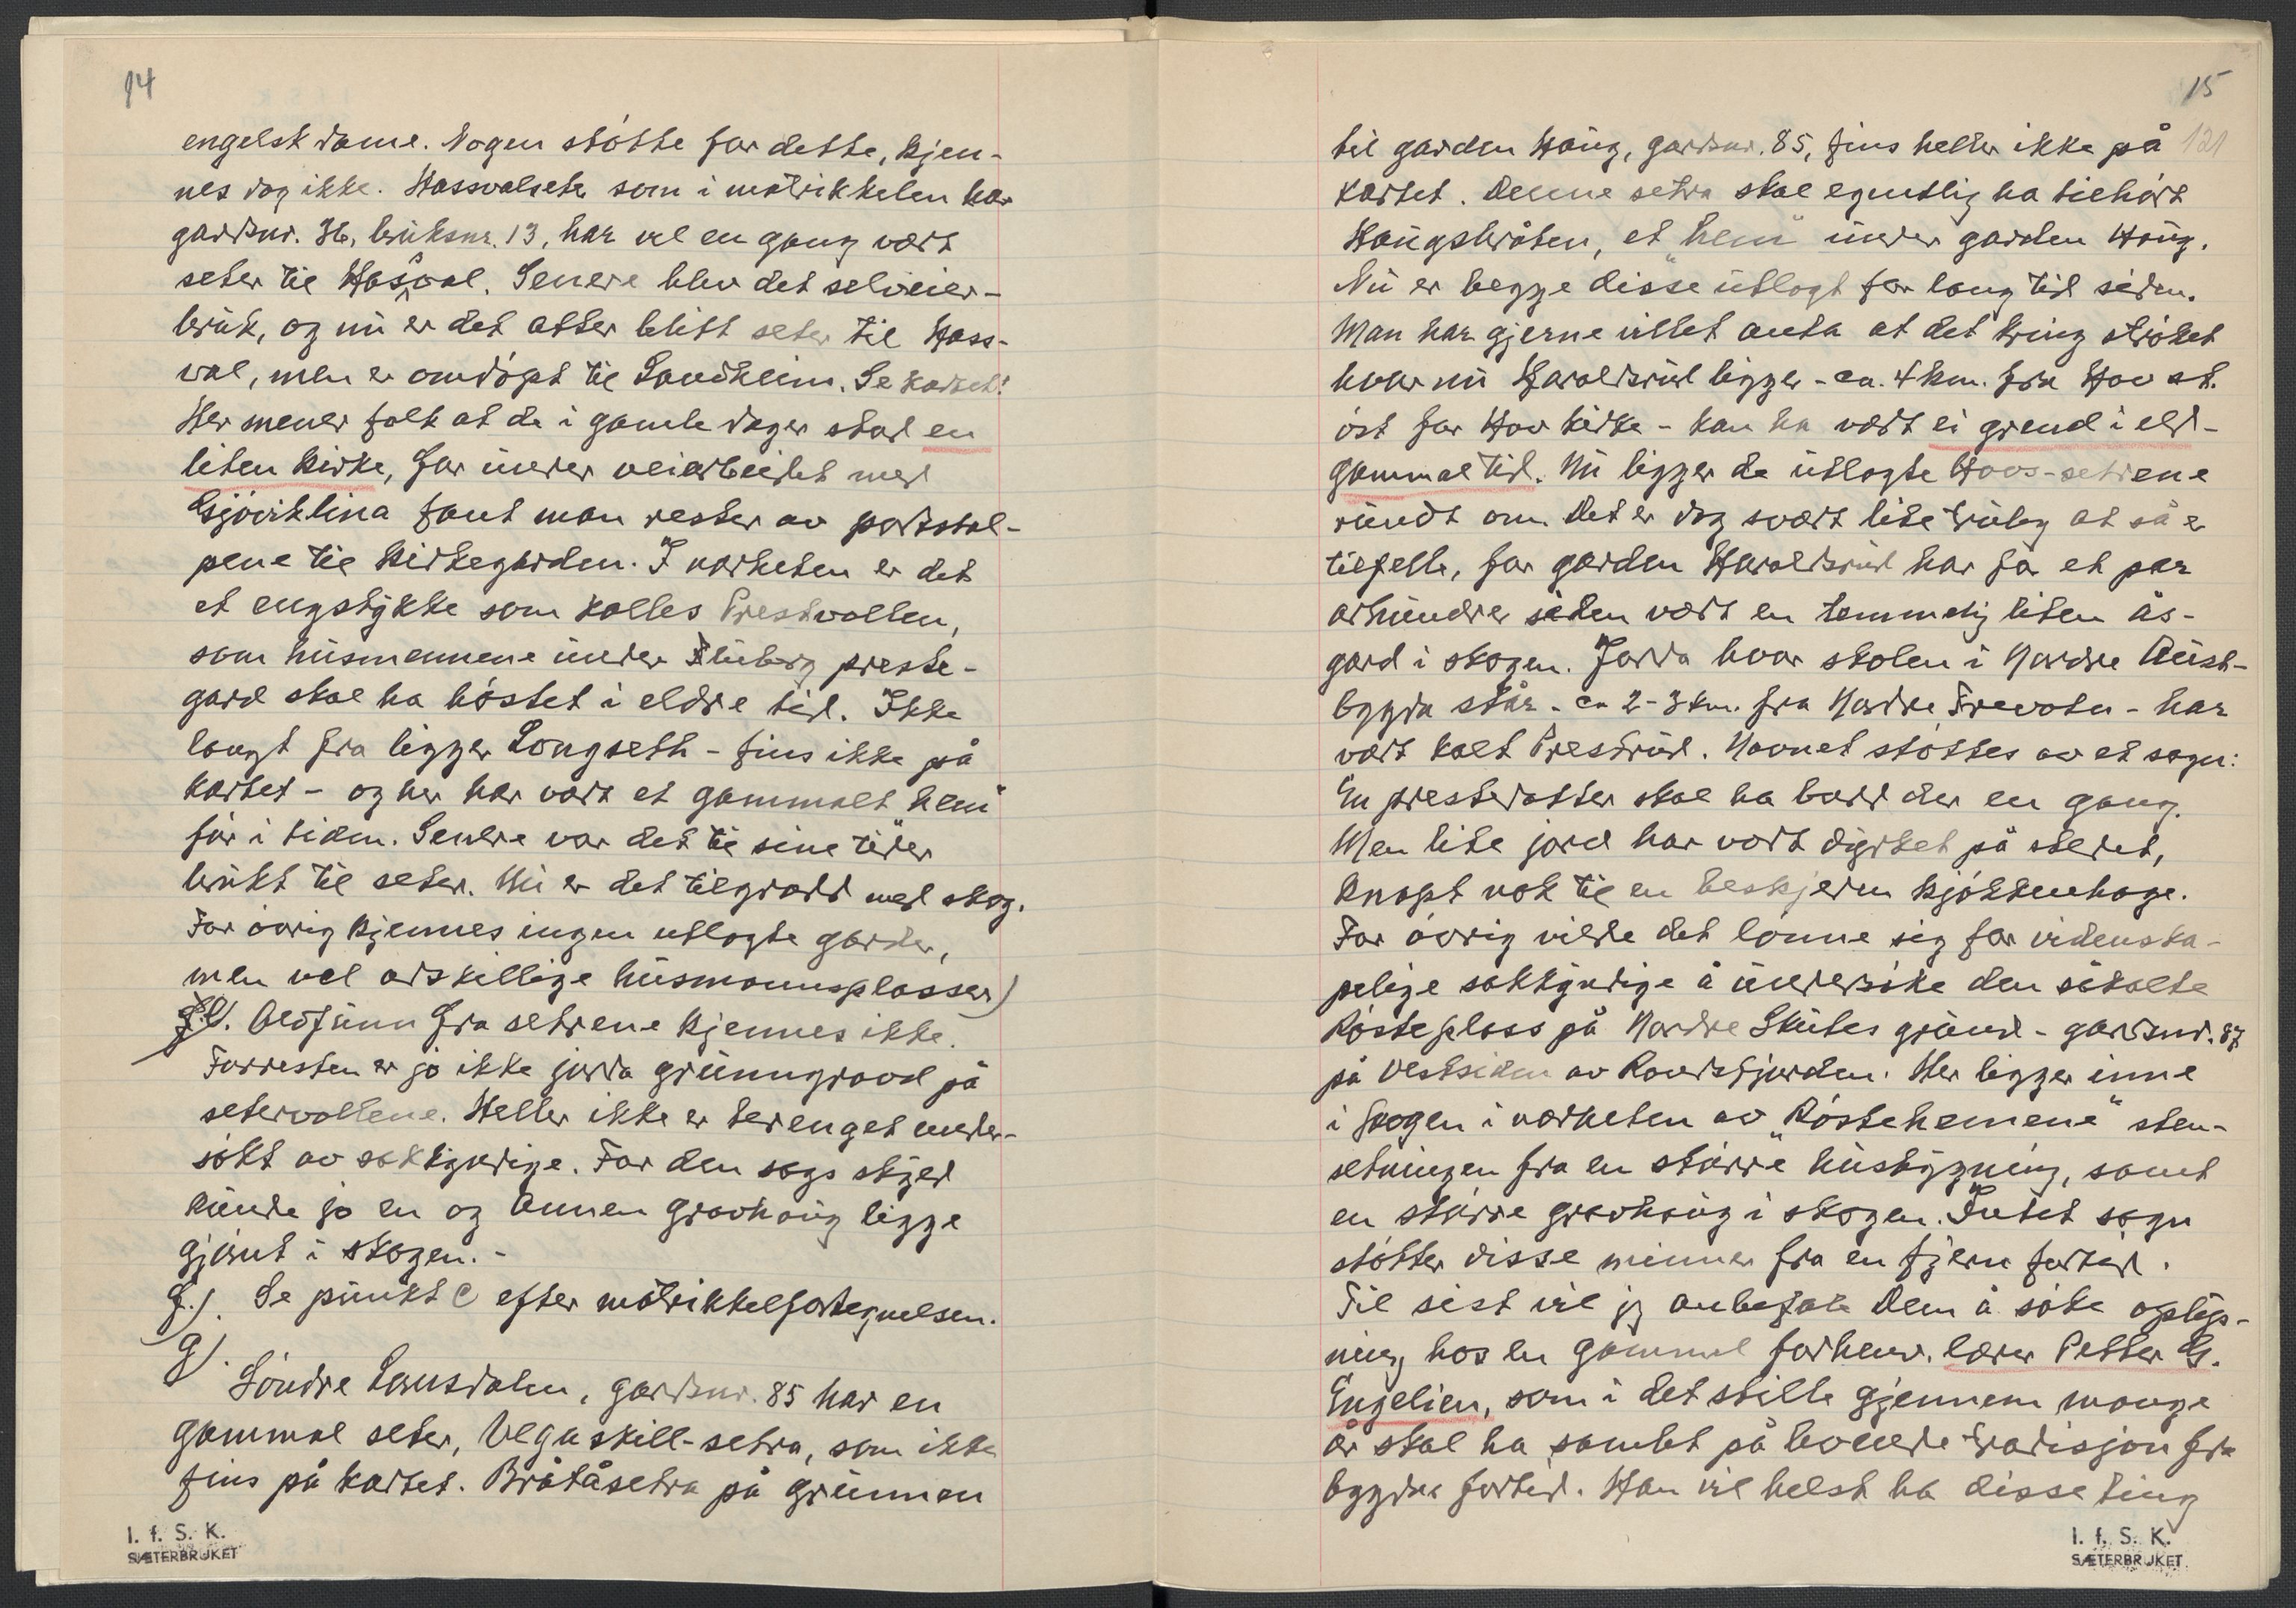 14
engelsk dame. Nogen støtte for dette, kjen-
nes dog ikke. Hassvalseter som i matrikkelen har
gardsnr. 36, bruksnr. 13, har vel en gang vært
seter til Hasvål. Senere blev det selveier-
bruk, og nu er det atter blitt seter til Hass-
val, men er omdøpt til Sandheim. Se kartet!
Her mener folk at de i gamle dager stod en
liten kirke, for under veiarbeidet med
Gjøviklina fant man rester av portstol-
pene til kirkegarden. I nærheten er det
et engstykke som kalles Prestvollen,
som husmennene under preste-
gard skal ha høstet i eldre tid. Ikke
langt fra ligger Longseth - fins ikke på
kartet - og her har vært et gammalt "hem"
før i tiden. Senere var det til sine tider
brukt til seter. Nu er det tilgrodd med skog.
For øvrig kjennes ingen utlagte garder,
men vel adskillige husmannsplasser)
Oldfunn fra setrene kjennes ikke.
Forresten er jo ikke jorda grunngravd på
setervollene. Heller ikke er terenget under-
søkt av sakkyndige. For den sags skyld
kunde jo en og annen gravhaug ligge
gjømt i skogen. -
f.). Se punkt C efter matrikkelfortegnelsen.
g).
Søndre Lausdalen, gardsnr. 85 har en
gammal seter, Velgaskill-setra, som ikke
fins på kartet. Bråtåsetra på grunnen
I. f. S. K.
SÆTERBRUKET
15
121
til garden Haug, gardsnr. 85, fins heller ikke på
kartet. Denne setra skal egentlig ha tilhørt
Haugsbråten, et "hem" under garden Haug.
Nu er begge disse utlagt for lang tid siden.
Man har gjerne villet anta at det kring strøket
hvor nu Haraldsrud ligger - ca. 4 km. fra Hov st.
øst for Hov kirke - kan ha vært ei grend i eld-
gammal tid. Nu ligger de utlagte Hovs-setrene
rundt om. Det er dog svært lite trulig at så er
tilfelle, for garden Haraldsrud har for et par
århundrer siden vært en temmelig liten ås-
gard i skogen. Jorda hvor skolen i Nordre Aust-
bygda står - ca 2-3 km. fra Nordre Trevatn - har
vært kalt Prestrud. Navnet støttes av et sagn:
En prestedatter skal ha bodd der en gang.
Men lite jord har vært dyrket på stedet,
knapt nok til en beskjeden kjøkkenhage.
For øvrig vilde det lønne sig for videnska-
pelige sakkyndige å undersøke den såkalte
Røsteplass på Nordre Skutes grund - gardsnr. 87
på vestsiden av Randsfjorden. Her ligger inne
i skogen i nærheten av "Røstehemene" sten-
setningen fra en større husbygning, samt
en større gravhaug i skogen. Intet sagn
støtter disse minner fra en fjern fortid.
Til sist vil jeg anbefale Dem å søke oplys-
ning hos en gammal forhenv. lærer Petter G.
Engelien, som i det stille gjennem mange
år skal ha samlet på levende tradisjon fra
bygdas fortid. Han vil helst ha disse ting
I. f. S. K.
SÆTERBRUKET